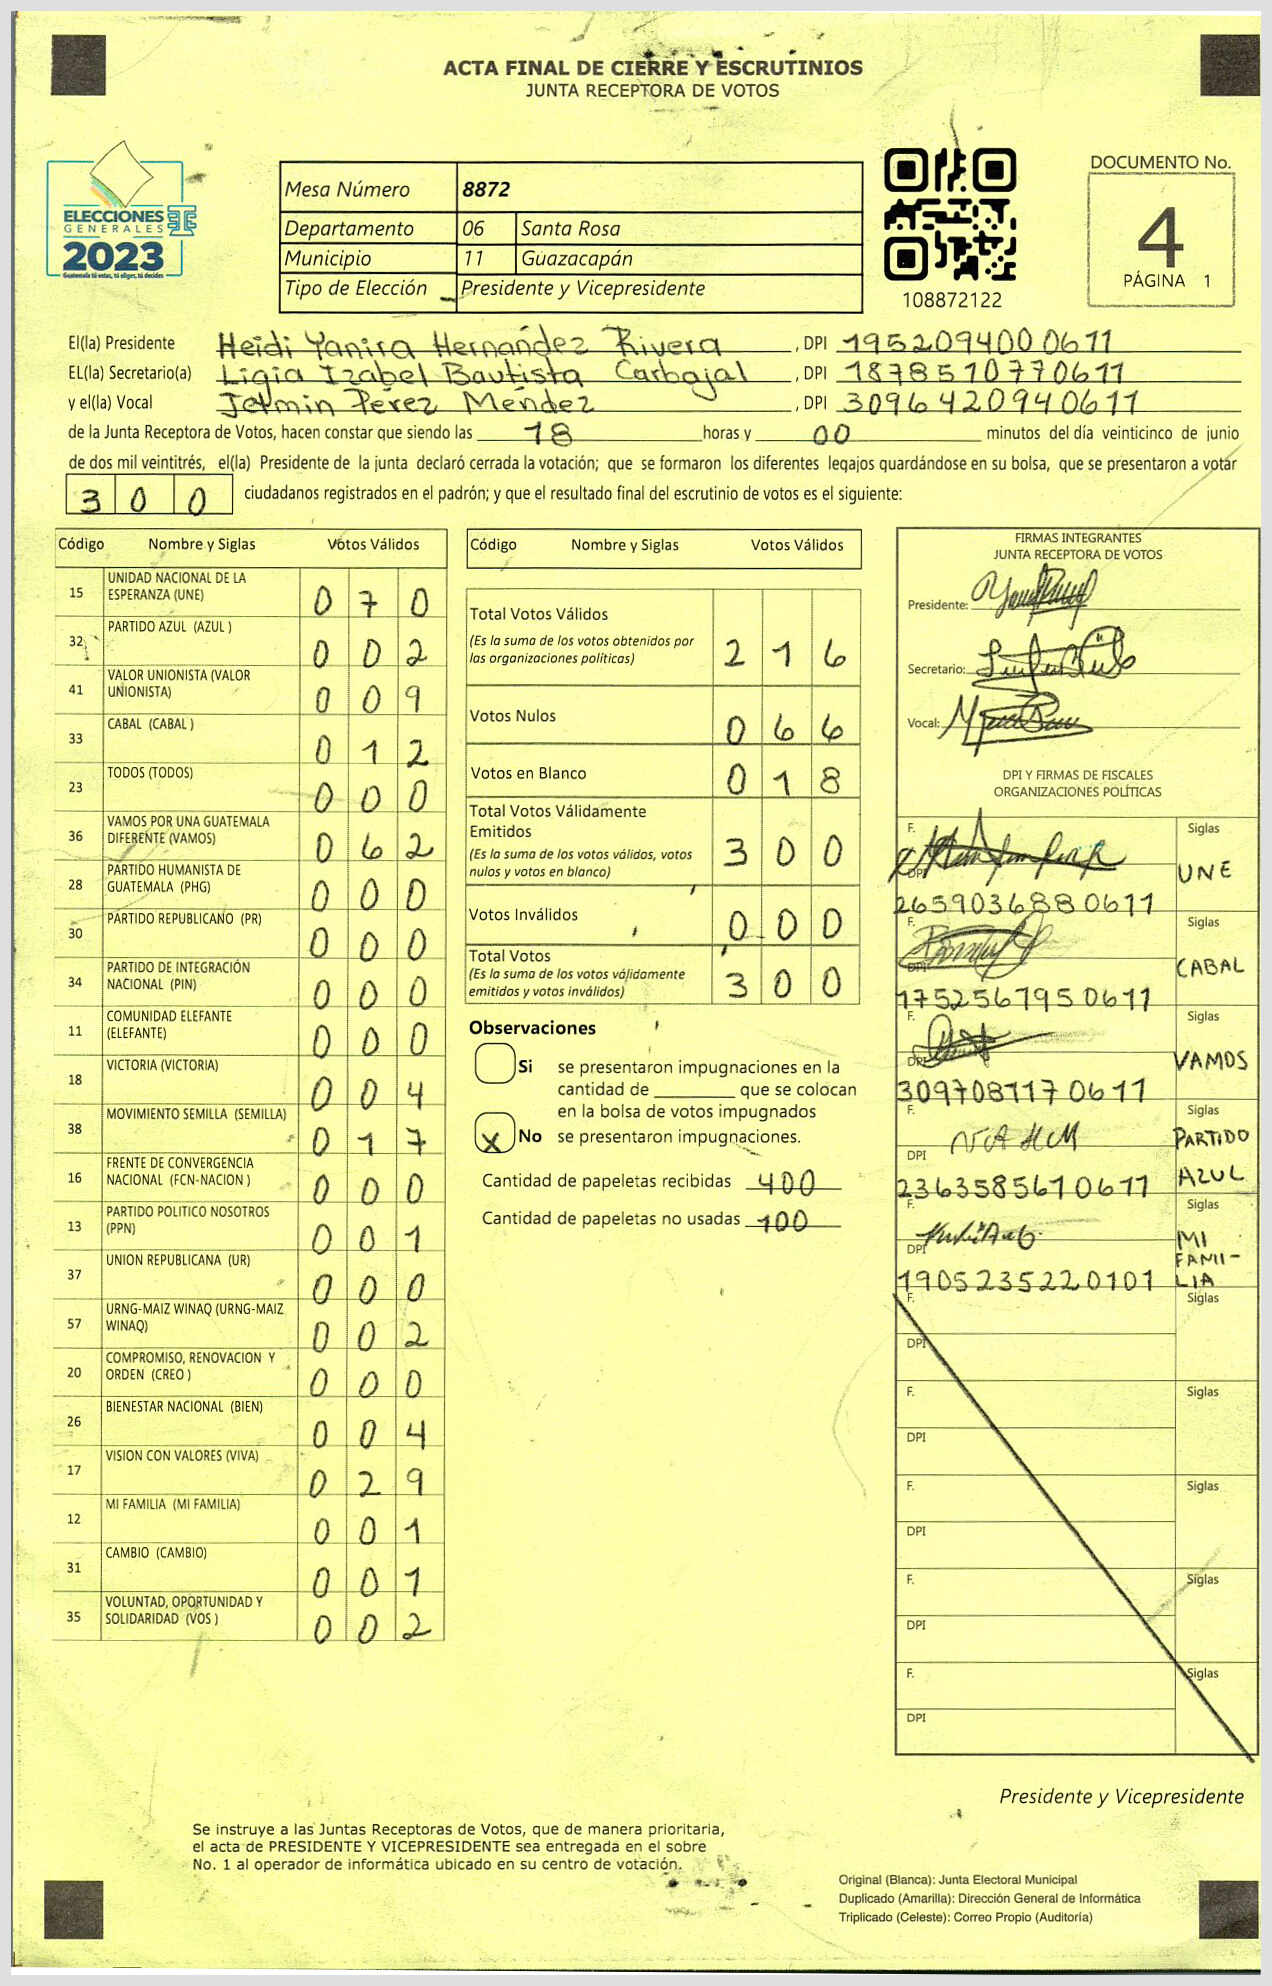 ACTA FINAL DE CIERRE Y ESCRUTINIOS
JUNTA RECEPTORA DE VOTOS
ELECCIONES
GENERALES
2023
Guatemala tú votas, tú eliges, tú decides
Mesa Número 8872
Departamento 06 Santa Rosa
Municipio 11 Guazacapán
Tipo de Elección Presidente y Vicepresidente
108872122
DOCUMENTO No.
4
PÁGINA 1
El(la) Presidente Heidi Yanira Hernández Rivera, DPI 1952094000611
EL(la) Secretario(a) Ligia Izabel Bautista Carbajal, DPI 1878510770611
y el(la) Vocal Jetmin Pérez Méndez, DPI 3096420940611
de la Junta Receptora de Votos, hacen constar que siendo las 18 horas y 00 minutos del día veinticinco de junio
de dos mil veintitrés, el(la) Presidente de la junta declaró cerrada la votación; que se formaron los diferentes legajos guardándose en su bolsa, que se presentaron a votar
300 ciudadanos registrados en el padrón; y que el resultado final del escrutinio de votos es el siguiente:
Código Nombre y Siglas Votos Válidos
15 UNIDAD NACIONAL DE LA ESPERANZA (UNE) 0 7 0
32 PARTIDO AZUL (AZUL ) 0 0 2
41 VALOR UNIONISTA (VALOR UNIONISTA) 0 0 9
33 CABAL (CABAL ) 0 1 2
23 TODOS (TODOS) 0 0 0
36 VAMOS POR UNA GUATEMALA DIFERENTE (VAMOS) 0 6 2
28 PARTIDO HUMANISTA DE GUATEMALA (PHG) 0 0 0
30 PARTIDO REPUBLICANO (PR) 0 0 0
34 PARTIDO DE INTEGRACIÓN NACIONAL (PIN) 0 0 0
11 COMUNIDAD ELEFANTE (ELEFANTE) 0 0 0
18 VICTORIA (VICTORIA) 0 0 4
38 MOVIMIENTO SEMILLA (SEMILLA) 0 1 7
16 FRENTE DE CONVERGENCIA NACIONAL (FCN-NACION ) 0 0 0
13 PARTIDO POLITICO NOSOTROS (PPN) 0 0 1
37 UNION REPUBLICANA (UR) 0 0 0
57 URNG-MAIZ WINAQ (URNG-MAIZ WINAQ) 0 0 2
20 COMPROMISO, RENOVACION Y ORDEN (CREO ) 0 0 0
26 BIENESTAR NACIONAL (BIEN) 0 0 4
17 VISION CON VALORES (VIVA) 0 2 9
12 MI FAMILIA (MI FAMILIA) 0 0 1
31 CAMBIO (CAMBIO) 0 0 1
35 VOLUNTAD, OPORTUNIDAD Y SOLIDARIDAD (VOS ) 0 0 2
Código Nombre y Siglas Votos Válidos
Total Votos Válidos
(Es la suma de los votos obtenidos por
las organizaciones políticas) 2 1 6
Votos Nulos 0 6 6
Votos en Blanco 0 1 8
Total Votos Válidamente
Emitidos
(Es la suma de los votos válidos, votos
nulos y votos en blanco) 3 0 0
Votos Inválidos 0 0 0
Total Votos
(Es la suma de los votos válidamente
emitidos y votos inválidos) 3 0 0
Observaciones
Si se presentaron impugnaciones en la
cantidad de ________ que se colocan
en la bolsa de votos impugnados
X No se presentaron impugnaciones.
Cantidad de papeletas recibidas 400
Cantidad de papeletas no usadas 100
FIRMAS INTEGRANTES
JUNTA RECEPTORA DE VOTOS
Presidente:
Secretario:
Vocal:
DPI Y FIRMAS DE FISCALES
ORGANIZACIONES POLÍTICAS
F. Siglas
DPI 2659036880611 UNE
F. Siglas
DPI 1752567950611 CABAL
F. Siglas
DPI 3097081170611 VAMOS
F. Siglas
DPI 2363585610611 PARTIDO AZUL
F. Siglas
DPI 1905235220101 MI FAMI-LIA
F. Siglas
DPI
F. Siglas
DPI
F. Siglas
DPI
F. Siglas
DPI
F. Siglas
DPI
Presidente y Vicepresidente
Se instruye a las Juntas Receptoras de Votos, que de manera prioritaria,
el acta de PRESIDENTE Y VICEPRESIDENTE sea entregada en el sobre
No. 1 al operador de informática ubicado en su centro de votación.
Original (Blanca): Junta Electoral Municipal
Duplicado (Amarilla): Dirección General de Informática
Triplicado (Celeste): Correo Propio (Auditoría)